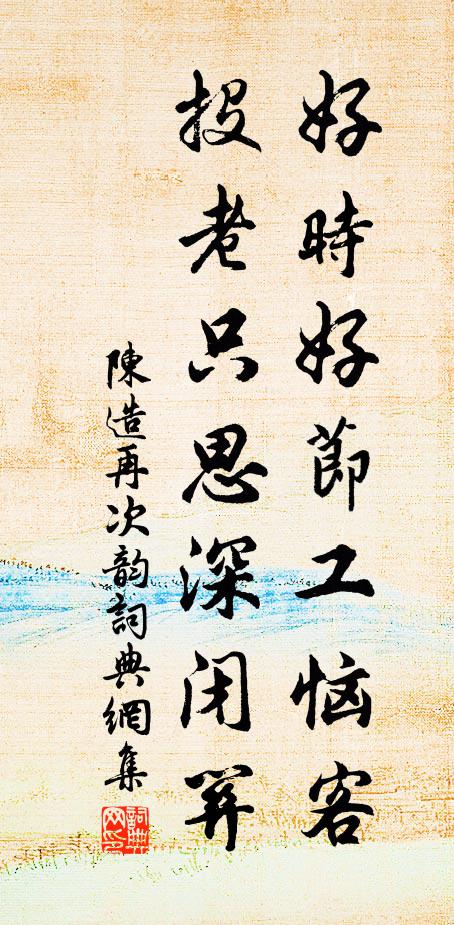 好時好節工恼客
投老只思深闭关
陳造再次韵詞典網集
詞典网印